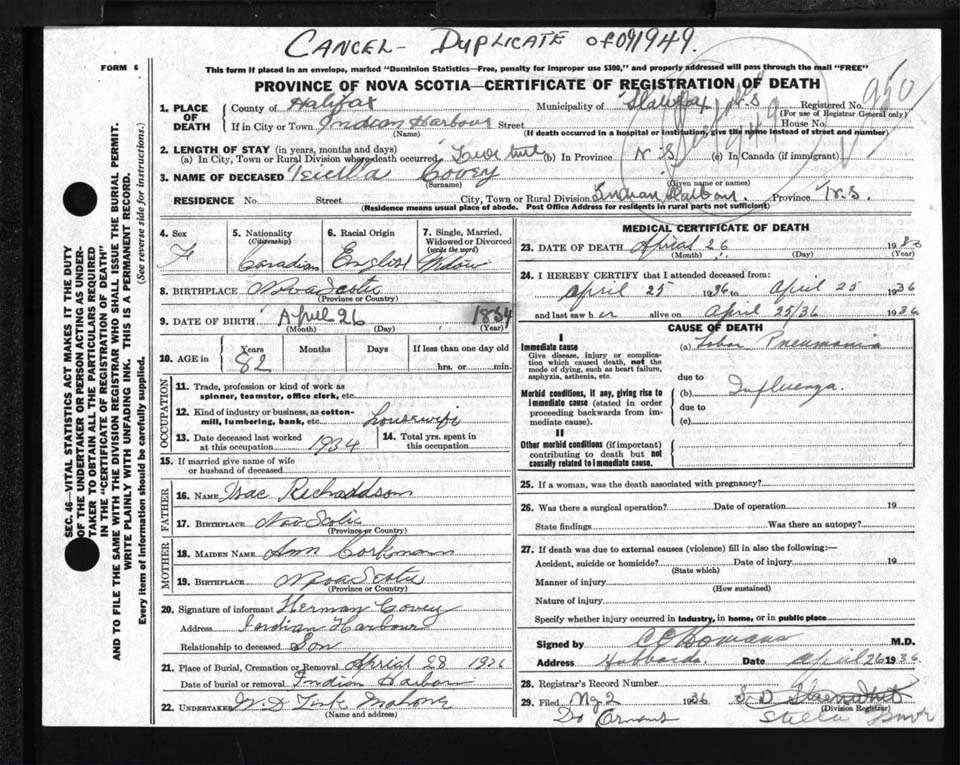 CANCEL - DUPLICATE of 091949.
FORM 6
This form if placed in an envelope, marked "Dominion Statistics—Free, penalty for improper use $300," and properly addressed will pass through the mail "FREE"
PROVINCE OF NOVA SCOTIA—CERTIFICATE OF REGISTRATION OF DEATH
1. PLACE OF DEATH County of Halifax Municipality of Halifax N.S Registered No. 950
(For use of Registrar General only)
If in City or Town Indian Harbour Street House No.
(Name) (If death occurred in a hospital or institution, give the name instead of street and number)
2. LENGTH OF STAY (in years, months and days)
(a) In City, Town or Rural Division where death occurred Life time (b) In Province N.S (c) In Canada (if immigrant)
3. NAME OF DECEASED Covey
(Surname) (Given name or names)
RESIDENCE No. Street City, Town or Rural Division Indian Harbour Province N.S.
(Residence means usual place of abode. Post Office Address for residents in rural parts not sufficient)
4. Sex 5. Nationality (Citizenship) 6. Racial Origin 7. Single, Married, Widowed or Divorced (write the word)
Fe Canadian English Widow
8. BIRTHPLACE Nova Scotia
(Province or Country)
9. DATE OF BIRTH April 26 1854
(Month) (Day) (Year)
10. AGE in Years Months Days If less than one day old
82 hrs. or min.
OCCUPATION
11. Trade, profession or kind of work as spinner, teamster, office clerk, etc.
12. Kind of industry or business, as cotton-mill, lumbering, bank, etc. housewife
13. Date deceased last worked at this occupation 1934 14. Total yrs. spent in this occupation
15. If married give name of wife or husband of deceased
FATHER
16. NAME Isac Richaddson
17. BIRTHPLACE Nova Scotia
(Province or Country)
MOTHER
18. MAIDEN NAME Ann
19. BIRTHPLACE Nova Scotia
(Province or Country)
20. Signature of informant Herman Covey
Address Indian Harbour
Relationship to deceased Son
21. Place of Burial, Cremation or Removal Aprial 28 1936
Date of burial or removal Indian Harbour
22. UNDERTAKER Mahone
(Name and address)
MEDICAL CERTIFICATE OF DEATH
23. DATE OF DEATH Aprial 26 19
(Month) (Day) (Year)
24. I HEREBY CERTIFY that I attended deceased from:
April 25 1936 to April 25 1936
and last saw h er alive on April 25/36 1936
CAUSE OF DEATH
I
Immediate cause (a) Lobar Pneumonia
Give disease, injury or complication which caused death, not the mode of dying, such as heart failure, asphyxia, asthenia, etc.
due to
Morbid conditions, if any, giving rise to immediate cause (stated in order proceeding backwards from immediate cause). (b) Influenza.
due to
(c)
II
Other morbid conditions (if important) contributing to death but not causally related to immediate cause.
25. If a woman, was the death associated with pregnancy?
26. Was there a surgical operation? Date of operation 19
State findings Was there an autopsy?
27. If death was due to external causes (violence) fill in also the following:—
Accident, suicide or homicide? Date of injury 19
(State which)
Manner of injury
(How sustained)
Nature of injury
Specify whether injury occurred in industry, in home, or in public place
Signed by M.D.
Address Hubbards. Date April 26 1936
28. Registrar's Record Number
29. Filed 2 1936
(Division Registrar)
Stella
SEC. 46—VITAL STATISTICS ACT MAKES IT THE DUTY
OF THE UNDERTAKER OR PERSON ACTING AS UNDER-
TAKER TO OBTAIN ALL THE PARTICULARS REQUIRED
IN THE "CERTIFICATE OF REGISTRATION OF DEATH"
AND TO FILE THE SAME WITH THE DIVISION REGISTRAR WHO SHALL ISSUE THE BURIAL PERMIT.
WRITE PLAINLY WITH UNFADING INK. THIS IS A PERMANENT RECORD.
Every item of information should be carefully supplied. (See reverse side for instructions.)